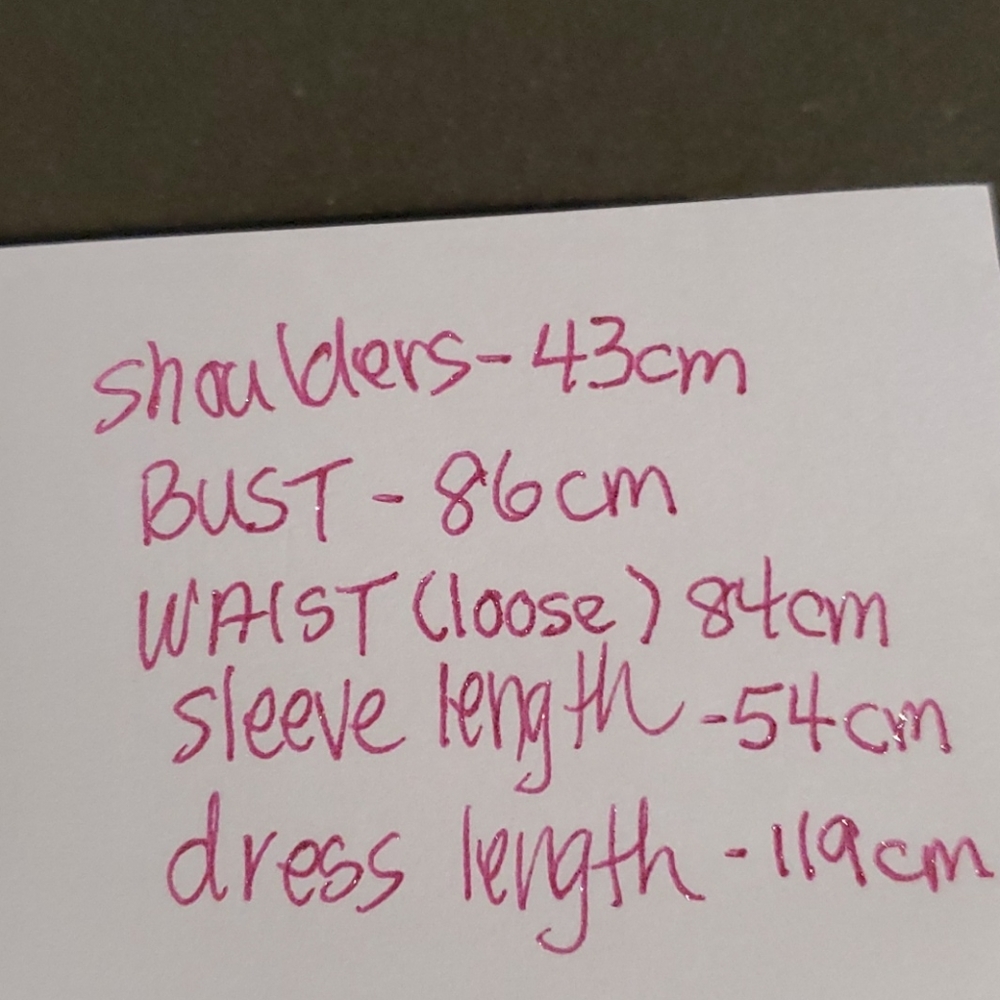 shoulders - 43cm
BUST - 86cm
WAIST (loose) 84cm
sleeve length - 54cm
dress length - 119cm